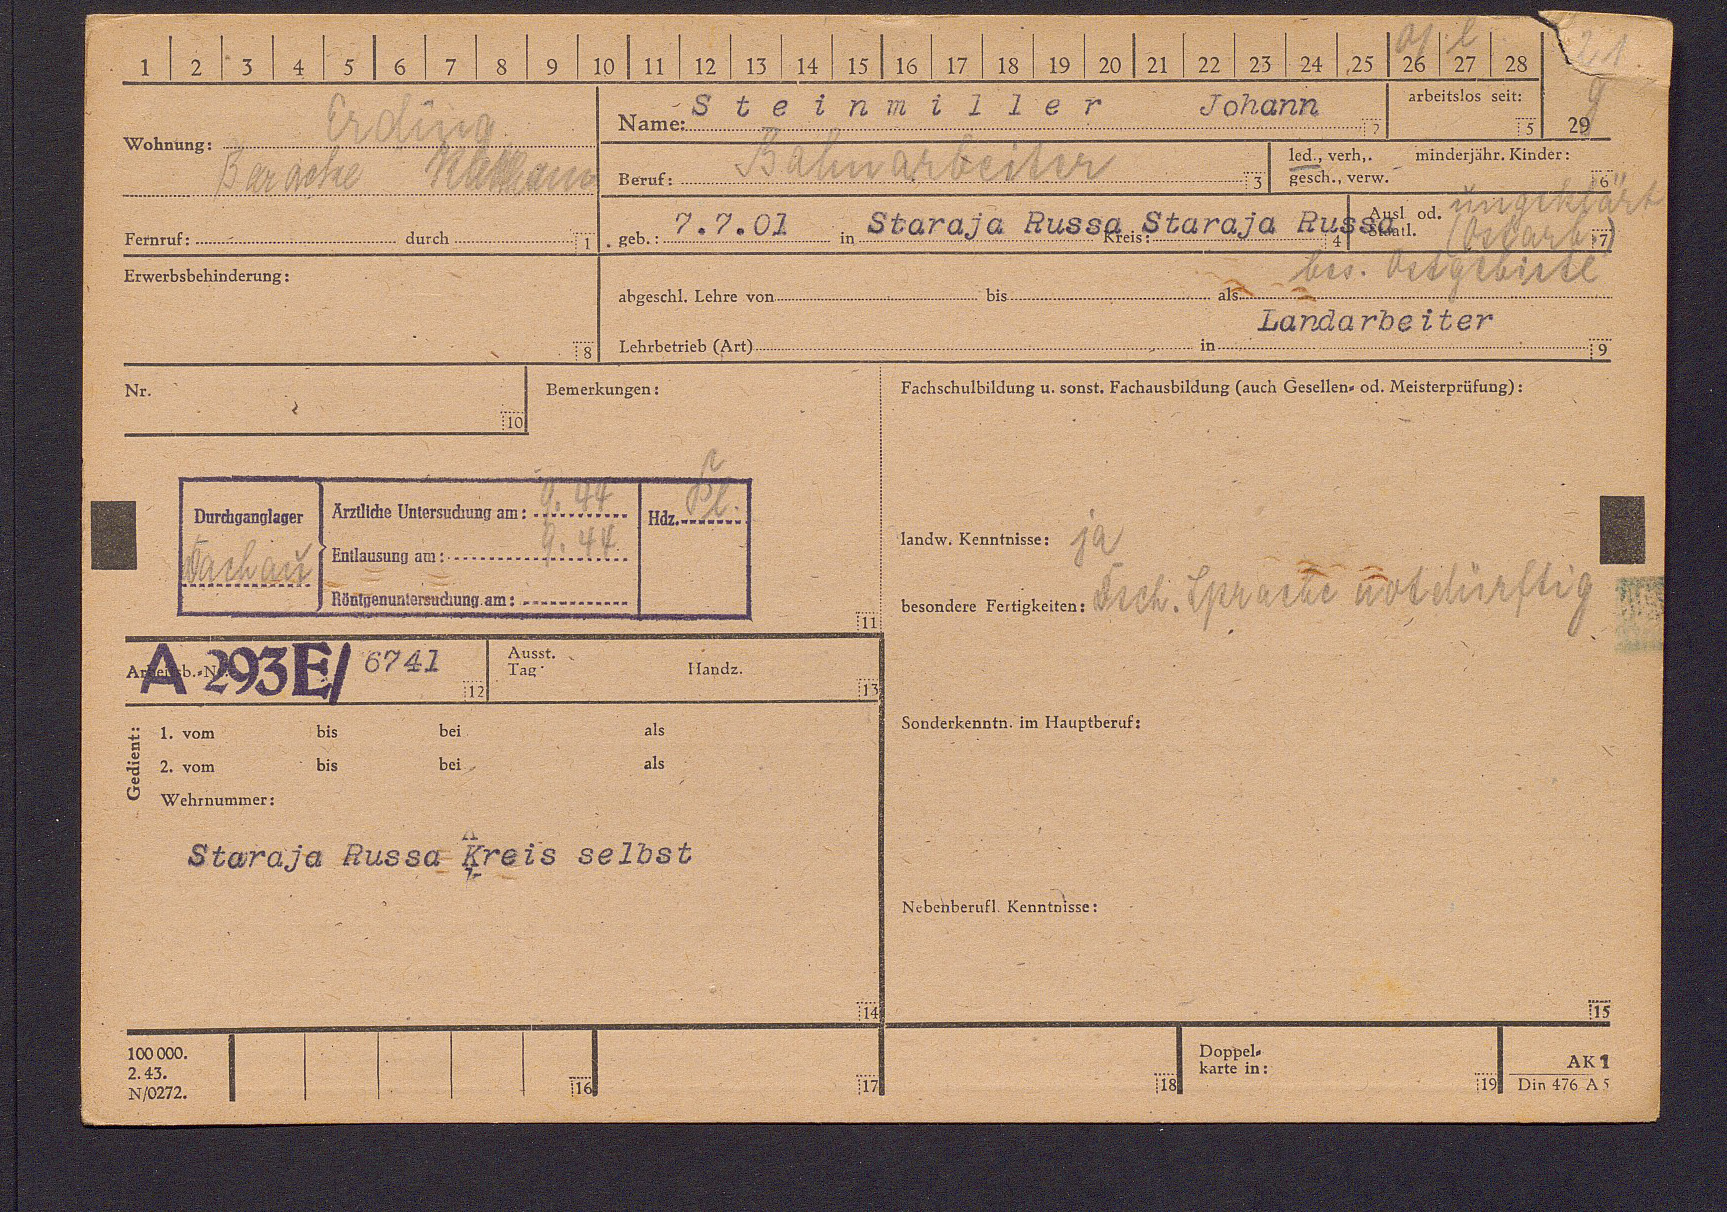 1 2 3 4 5 6 7 8 9 10 11 12 13 14 15 16 17 18 19 20 21 22 23 24 25 26 27 28
29
Wohnung: Erding
Baracke
Fernruf: durch 1
Name: Steinmiller Johann 2
arbeitslos seit: 5
Beruf: Bahnarbeiter 3
led., verh,. minderjähr. Kinder:
gesch., verw. 6
geb.: 7.7.01 in Staraja Russa Kreis: Staraja Russa 4
Ausl. od. ungeklärt
Staatl. (Ostarb.) 7
bes. Ostgebiete
Erwerbsbehinderung:
8
abgeschl. Lehre von bis als
Landarbeiter
Lehrbetrieb (Art) in 9
Nr.
10
Bemerkungen:
Durchganglager
Dachau
Ärztliche Untersuchung am: 9.44
Entlausung am: 9.44
Röntgenuntersuchung am:
Hdz.
11
Fachschulbildung u. sonst. Fachausbildung (auch Gesellen- od. Meisterprüfung):
landw. Kenntnisse: ja
besondere Fertigkeiten: Dtsch. Sprache notdürftig
Arbeitsb.-Nr. A 293E/ 6741 12
Ausst.
Tag: Handz. 13
Gedient:
1. vom bis bei als
2. vom bis bei als
Wehrnummer:
Staraja Russa Kreis selbst
14
Sonderkenntn. im Hauptberuf:
Nebenberufl. Kenntnisse:
15
100 000.
2.43.
N/0272.
16
17
18
Doppel-
karte in:
19
AK 1
Din 476 A 5